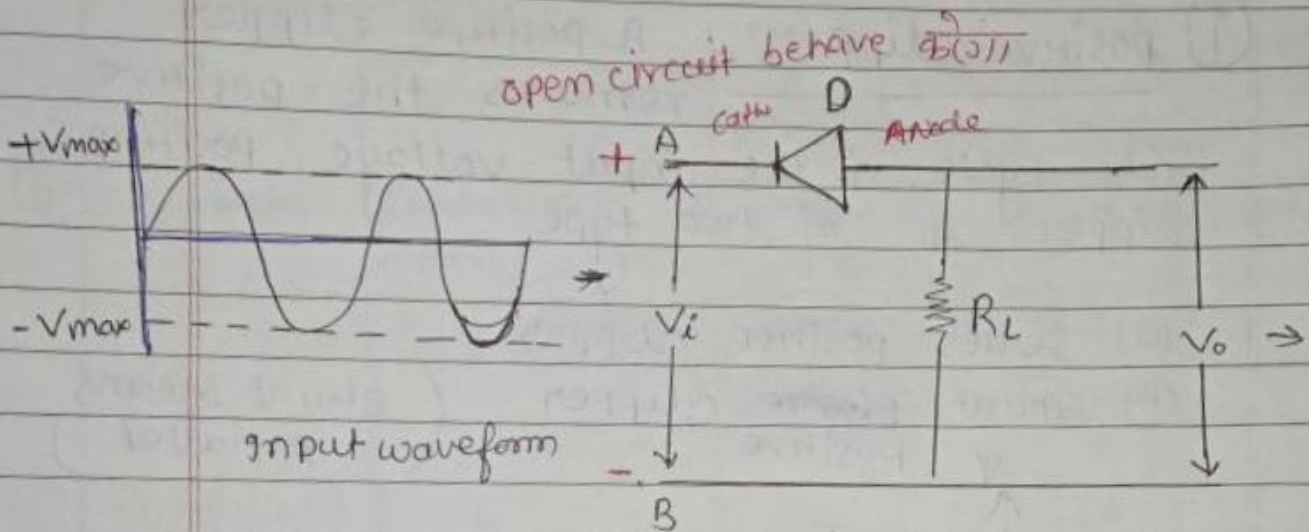 open circuit behave करेगा
+Vmax
-Vmax
Input waveform
+ A
Cath
D
Anode
Vi
RL
Vo →
- B